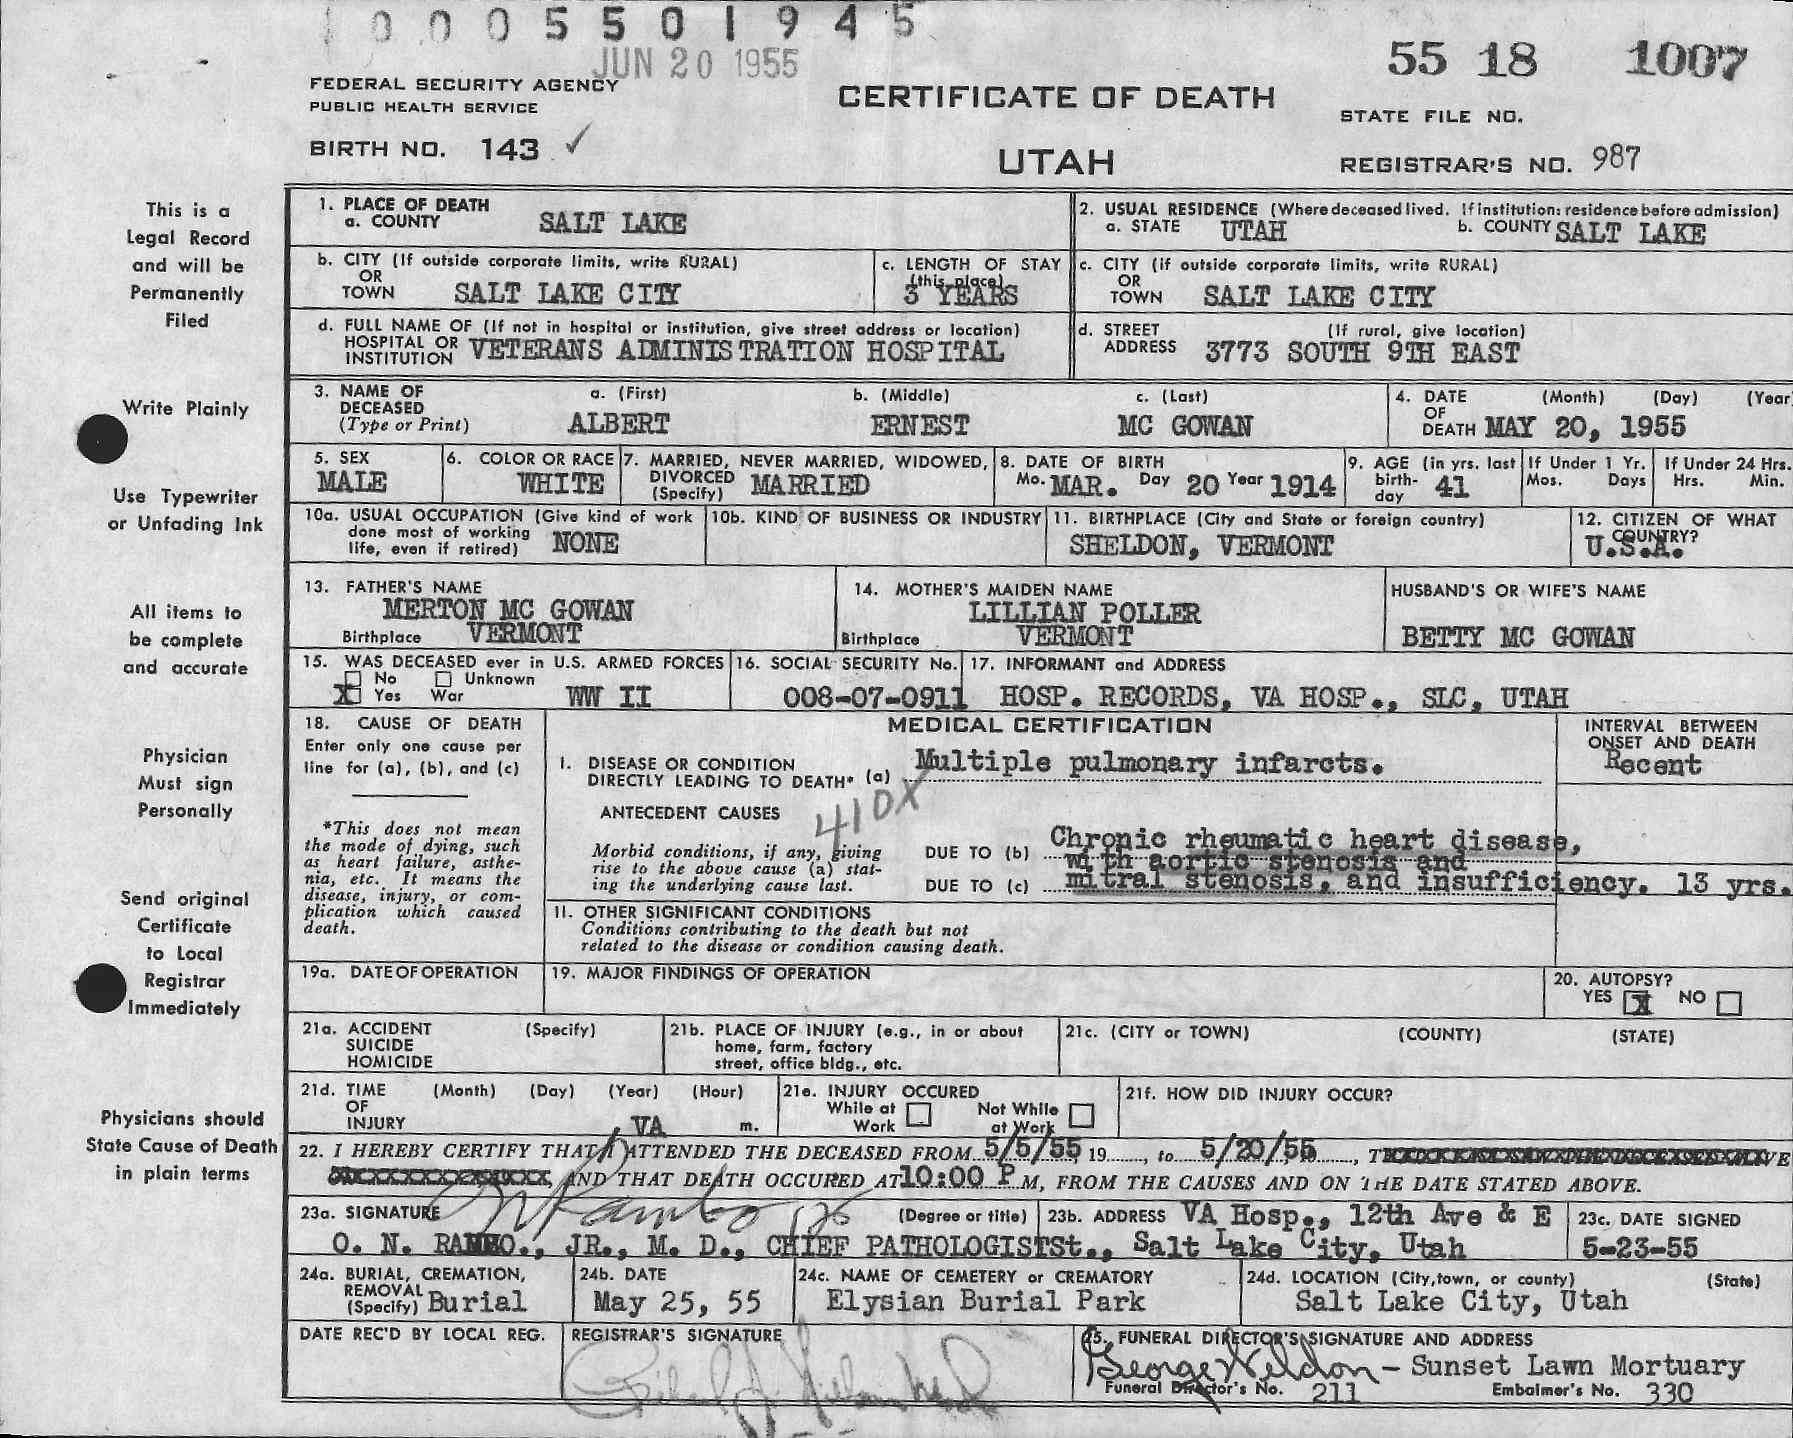 1000550 1945
JUN 20 1955
55 18 1007
FEDERAL SECURITY AGENCY
PUBLIC HEALTH SERVICE
CERTIFICATE OF DEATH
STATE FILE NO.
BIRTH NO. 143 ✓
UTAH
REGISTRAR'S NO. 987
This is a
Legal Record
and will be
Permanently
Filed
Write Plainly
Use Typewriter
or Unfading Ink
All items to
be complete
and accurate
Physician
Must sign
Personally
Send original
Certificate
to Local
Registrar
Immediately
Physicians should
State Cause of Death
in plain terms
1. PLACE OF DEATH
a. COUNTY SALT LAKE
2. USUAL RESIDENCE (Where deceased lived. If institution: residence before admission)
a. STATE UTAH b. COUNTY SALT LAKE
b. CITY (If outside corporate limits, write RURAL)
OR
TOWN SALT LAKE CITY
c. LENGTH OF STAY
(this place)
3 YEARS
c. CITY (If outside corporate limits, write RURAL)
OR
TOWN SALT LAKE CITY
d. FULL NAME OF (If not in hospital or institution, give street address or location)
HOSPITAL OR
INSTITUTION VETERANS ADMINISTRATION HOSPITAL
d. STREET (If rural, give location)
ADDRESS 3773 SOUTH 9TH EAST
3. NAME OF a. (First) b. (Middle) c. (Last)
DECEASED
(Type or Print) ALBERT ERNEST MC GOWAN
4. DATE (Month) (Day) (Year)
OF
DEATH MAY 20, 1955
5. SEX
MALE
6. COLOR OR RACE
WHITE
7. MARRIED, NEVER MARRIED, WIDOWED,
DIVORCED
(Specify) MARRIED
8. DATE OF BIRTH
Mo. MAR. Day 20 Year 1914
9. AGE (in yrs. last
birth-
day 41
If Under 1 Yr.
Mos. Days
If Under 24 Hrs.
Hrs. Min.
10a. USUAL OCCUPATION (Give kind of work
done most of working
life, even if retired) NONE
10b. KIND OF BUSINESS OR INDUSTRY
11. BIRTHPLACE (City and State or foreign country)
SHELDON, VERMONT
12. CITIZEN OF WHAT
COUNTRY?
U.S.A.
13. FATHER'S NAME
MERTON MC GOWAN
Birthplace VERMONT
14. MOTHER'S MAIDEN NAME
LILLIAN POLLER
Birthplace VERMONT
HUSBAND'S OR WIFE'S NAME
BETTY MC GOWAN
15. WAS DECEASED ever in U.S. ARMED FORCES
No Unknown
X Yes War WW II
16. SOCIAL SECURITY No.
008-07-0911
17. INFORMANT and ADDRESS
HOSP. RECORDS, VA HOSP., SLC, UTAH
18. CAUSE OF DEATH
Enter only one cause per
line for (a), (b), and (c)
*This does not mean
the mode of dying, such
as heart failure, asthe-
nia, etc. It means the
disease, injury, or com-
plication which caused
death.
MEDICAL CERTIFICATION
INTERVAL BETWEEN
ONSET AND DEATH
I. DISEASE OR CONDITION
DIRECTLY LEADING TO DEATH* (a) Multiple pulmonary infarcts. Recent
410X
ANTECEDENT CAUSES
Morbid conditions, if any, giving
rise to the above cause (a) stat-
ing the underlying cause last.
DUE TO (b) Chronic rheumatic heart disease,
with aortic stenosis and
DUE TO (c) mitral stenosis, and insufficiency. 13 yrs.
II. OTHER SIGNIFICANT CONDITIONS
Conditions contributing to the death but not
related to the disease or condition causing death.
19a. DATE OF OPERATION
19. MAJOR FINDINGS OF OPERATION
20. AUTOPSY?
YES X NO
21a. ACCIDENT (Specify)
SUICIDE
HOMICIDE
21b. PLACE OF INJURY (e.g., in or about
home, farm, factory
street, office bldg., etc.
21c. (CITY or TOWN) (COUNTY) (STATE)
21d. TIME (Month) (Day) (Year) (Hour)
OF
INJURY m.
21e. INJURY OCCURED
While at Work
Not While at Work
21f. HOW DID INJURY OCCUR?
VA
22. I HEREBY CERTIFY THAT I ATTENDED THE DECEASED FROM 5/5/55 19....., to 5/20/55 ....,
AND THAT DEATH OCCURED AT 10:00 P M, FROM THE CAUSES AND ON THE DATE STATED ABOVE.
23a. SIGNATURE ON Rambo Jr (Degree or title)
O. N. RAMBO., JR., M. D., CHIEF PATHOLOGIST
23b. ADDRESS VA Hosp., 12th Ave & E
St., Salt Lake City, Utah
23c. DATE SIGNED
5-23-55
24a. BURIAL, CREMATION,
REMOVAL
(Specify) Burial
24b. DATE
May 25, 55
24c. NAME OF CEMETERY or CREMATORY
Elysian Burial Park
24d. LOCATION (City, town, or county) (State)
Salt Lake City, Utah
DATE REC'D BY LOCAL REG.
REGISTRAR'S SIGNATURE
25. FUNERAL DIRECTOR'S SIGNATURE AND ADDRESS
George Weldon - Sunset Lawn Mortuary
Funeral Director's No. 211 Embalmer's No. 330